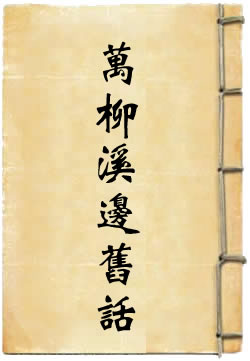 萬柳溪邊舊話